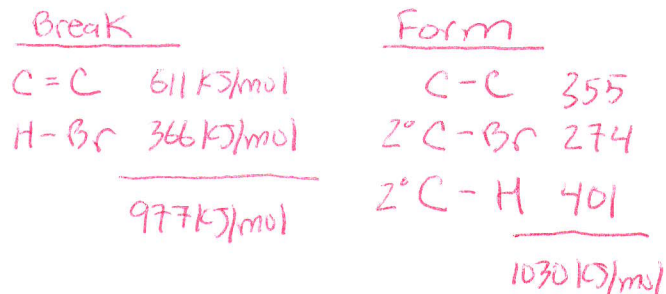 Break
C = C 611 KJ/mol
H-Br 366 KJ/mol
977 KJ/mol
Form
C-C 355
2° C-Br 274
2° C-H 401
1030 KJ/mol